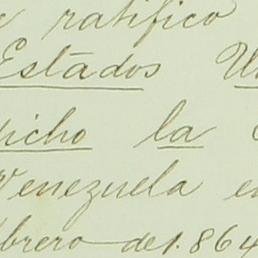 e ratifico
Estados U
dicho la
Venezuela e
brero de 1.864